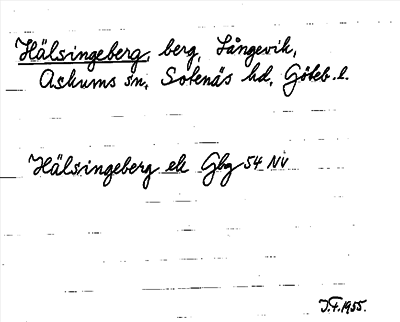 Hälsingeberg, berg, Långevik,
Askums sn, Sotenäs hd, Göteb. l.
Hälsingeberg ek Gbg 54 NV
J.F. 1955.